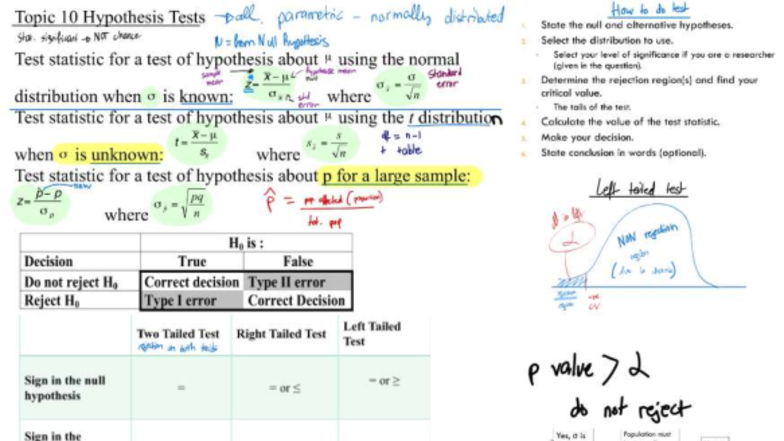 Topic 10 Hypothesis Tests → all parametric - normally distributed
Stat. significant → NOT chance
μ = from Null Hypothesis
Test statistic for a test of hypothesis about μ using the normal
distribution when σ is known: z = x̄-μ / σx̄ where σx̄ = σ/√n
sample mean
hypothesis mean null
std error
Standard error
Test statistic for a test of hypothesis about μ using the t distribution
when σ is unknown: t = x̄-μ / sx̄ where sx̄ = s/√n
df = n-1
t table
Test statistic for a test of hypothesis about p for a large sample:
z = p̂-p / σp̂ where σp̂ = √pq/n
p̂ =
H₀ is :
Decision True False
Do not reject H₀ Correct decision Type II error
Reject H₀ Type I error Correct Decision
Two Tailed Test Right Tailed Test Left Tailed Test
rejection on both tails
Sign in the null hypothesis = = or ≤ = or ≥
Sign in the
How to do test
1. State the null and alternative hypotheses.
2. Select the distribution to use.
- Select your level of significance if you are a researcher
(given in the question).
3. Determine the rejection region(s) and find your
critical value.
- The tails of the test.
4. Calculate the value of the test statistic.
5. Make your decision.
6. State conclusion in words (optional).
Left tailed test
α
NON rejection
region
-ve
CV
p value > α
do not reject
Yes, σ is
Population must